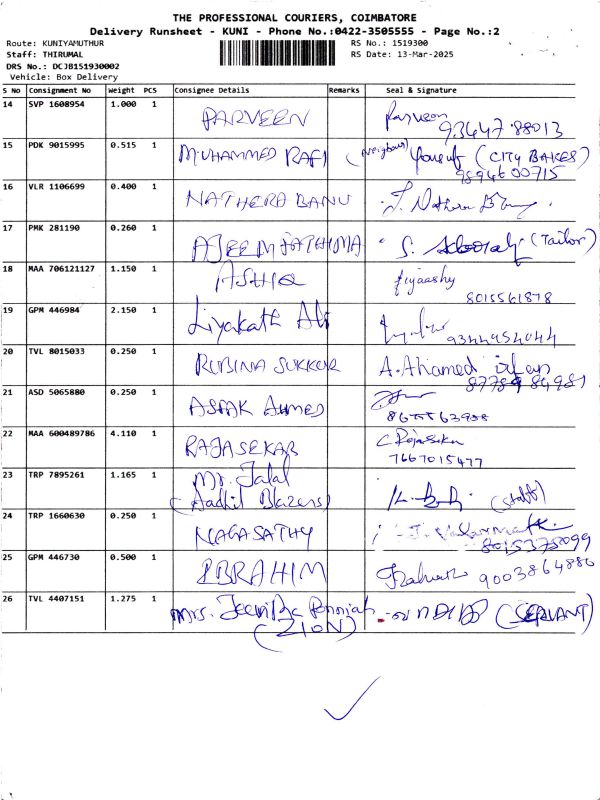 THE PROFESSIONAL COURIERS, COIMBATORE
Delivery Runsheet - KUNI - Phone No.:0422-3505555 - Page No.:2
Route: KUNIYAMUTHUR RS No.: 1519300
Staff: THIRUMAL RS Date: 13-Mar-2025
DRS No.: DCJB151930002
Vehicle: Box Delivery
S No Consignment No Weight PCS Consignee Details Remarks Seal & Signature
14 SVP 1608954 1.000 1 PARVEEN Parveen
93647 88013
15 PDK 9015995 0.515 1 MUHAMMED RAFI (neighbour) Yousuf (CITY BAKES)
9894600715
16 VLR 1106699 0.400 1 NATHERA BANU
17 PMK 281190 0.260 1 AJEEMFATHIMA S. (Tailor)
18 MAA 706121127 1.150 1 ASHIQ
8015561878
19 GPM 446984 2.150 1 Liyakath Ali
9344954044
20 TVL 8015033 0.250 1 RUBINA SUKKUR A. Ahamed
21 ASD 5065880 0.250 1 ASFAK AHMED
22 MAA 600489786 4.110 1 RAJASEKAR C Rajasekar
7667015477
23 TRP 7895261 1.165 1 Mr. Jalal
(Aadhil Blazers) (Staff)
24 TRP 1660630 0.250 1 NAGASATHY
8015375099
25 GPM 446730 0.500 1 IBRAHIM 9003864880
26 TVL 4407151 1.275 1 Mrs.
(ZION) (SERVANT)